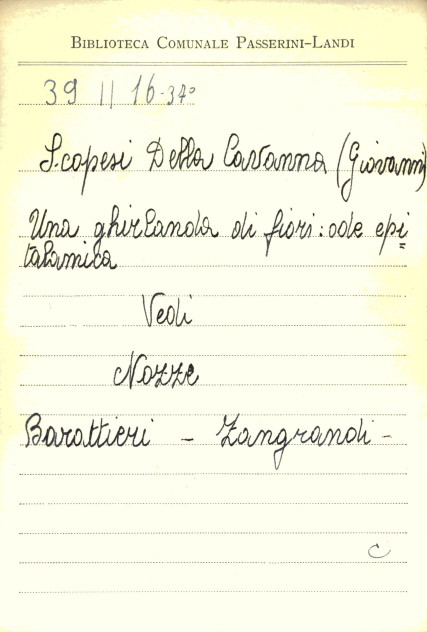 BIBLIOTECA COMUNALE PASSERINI-LANDI
39 || 16-37º
Scopesi Della Cavanna (Giovanni)
Una ghirlanda di fiori: ode epi=
talamica
Vedi
Nozze
Barattieri - Zangrandi -
C